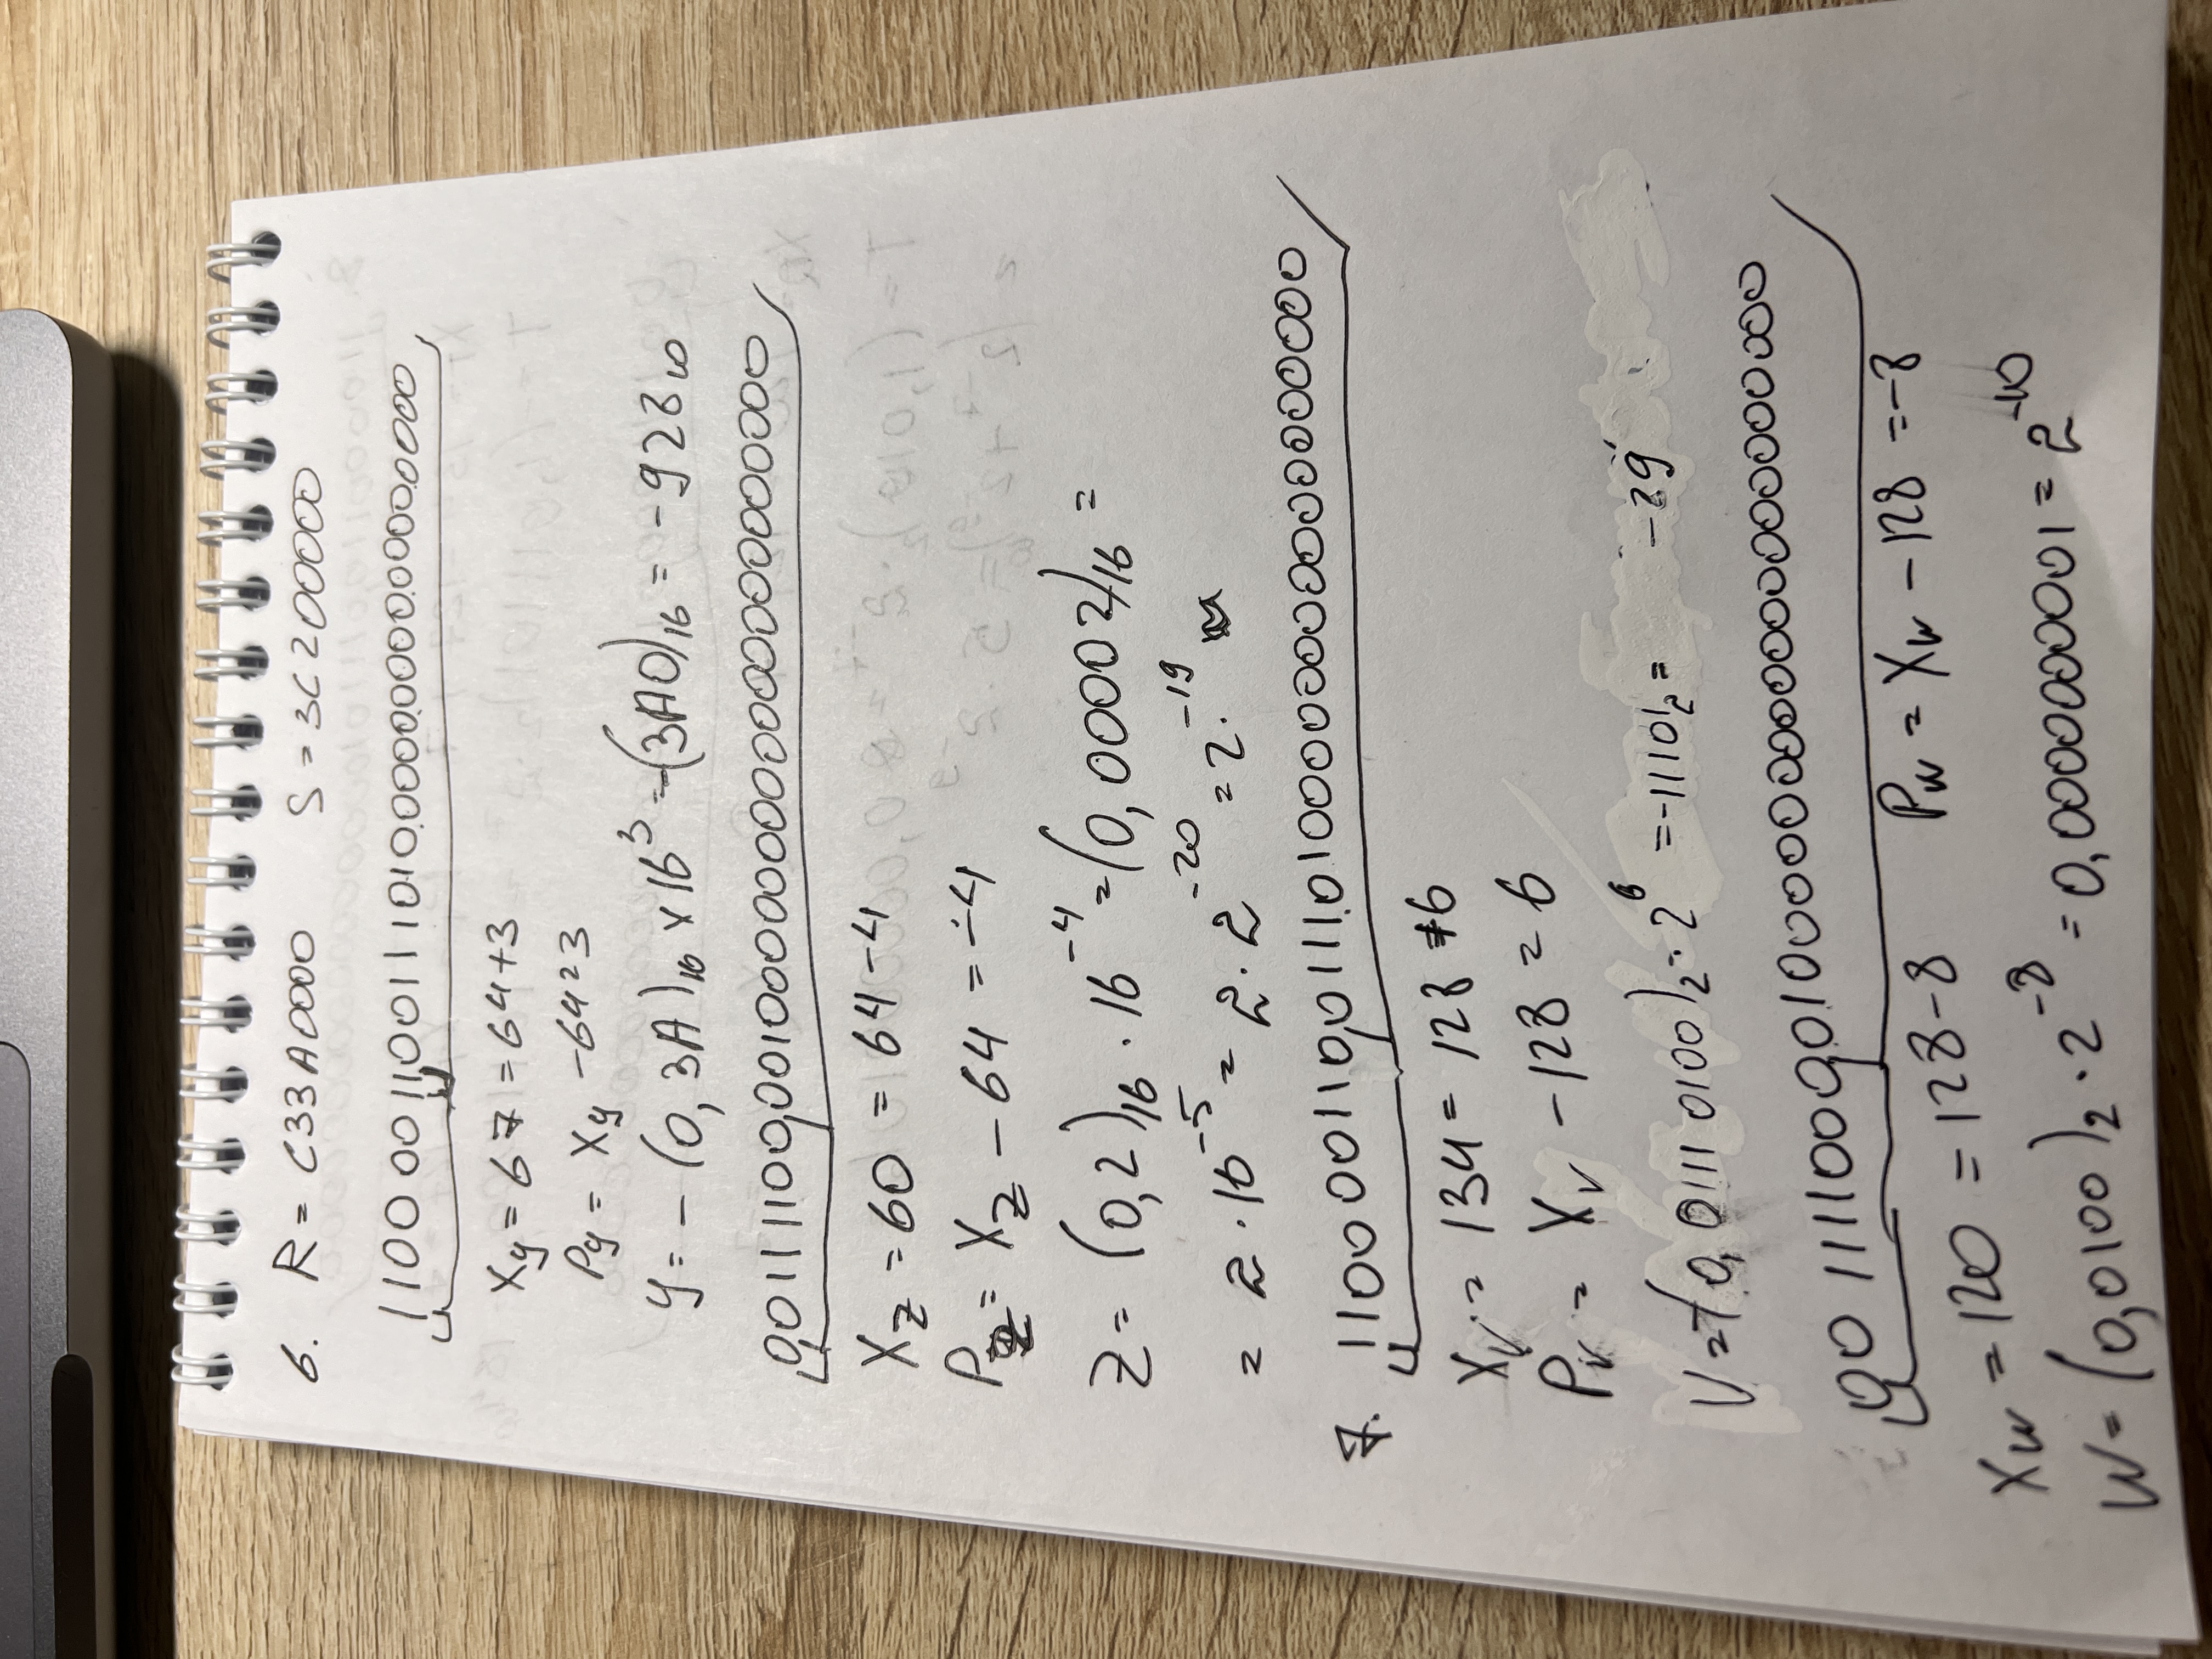 6. R = C33A0000 S = 3C200000
11000011001110100000000000000000
Xy = 67 = 64+3
Py = Xy -64=3
y = - (0, 3A)16 x 16^3 = -(3A0)16 = -928 10
00111100001000000000000000000000
Xz = 60 = 64-4
Pz = Xz - 64 = -4
Z = (0,2)16 · 16^-4 = (0,00002)16 =
= 2 · 16^-5 = 2 · 2^-20 = 2^-19
7. 11000011001110100000000000000000
Xv = 134 = 128 +6
Pv = Xv - 128 = 6
V = -(0,01110100)2 · 2^6 = -11101 2 = -29
00111100001000000000000000000000
Xw = 120 = 128-8 Pw = Xw - 128 = -8
W = (0,0100)2 · 2^-8 = 0,0000000001 = 2^-10